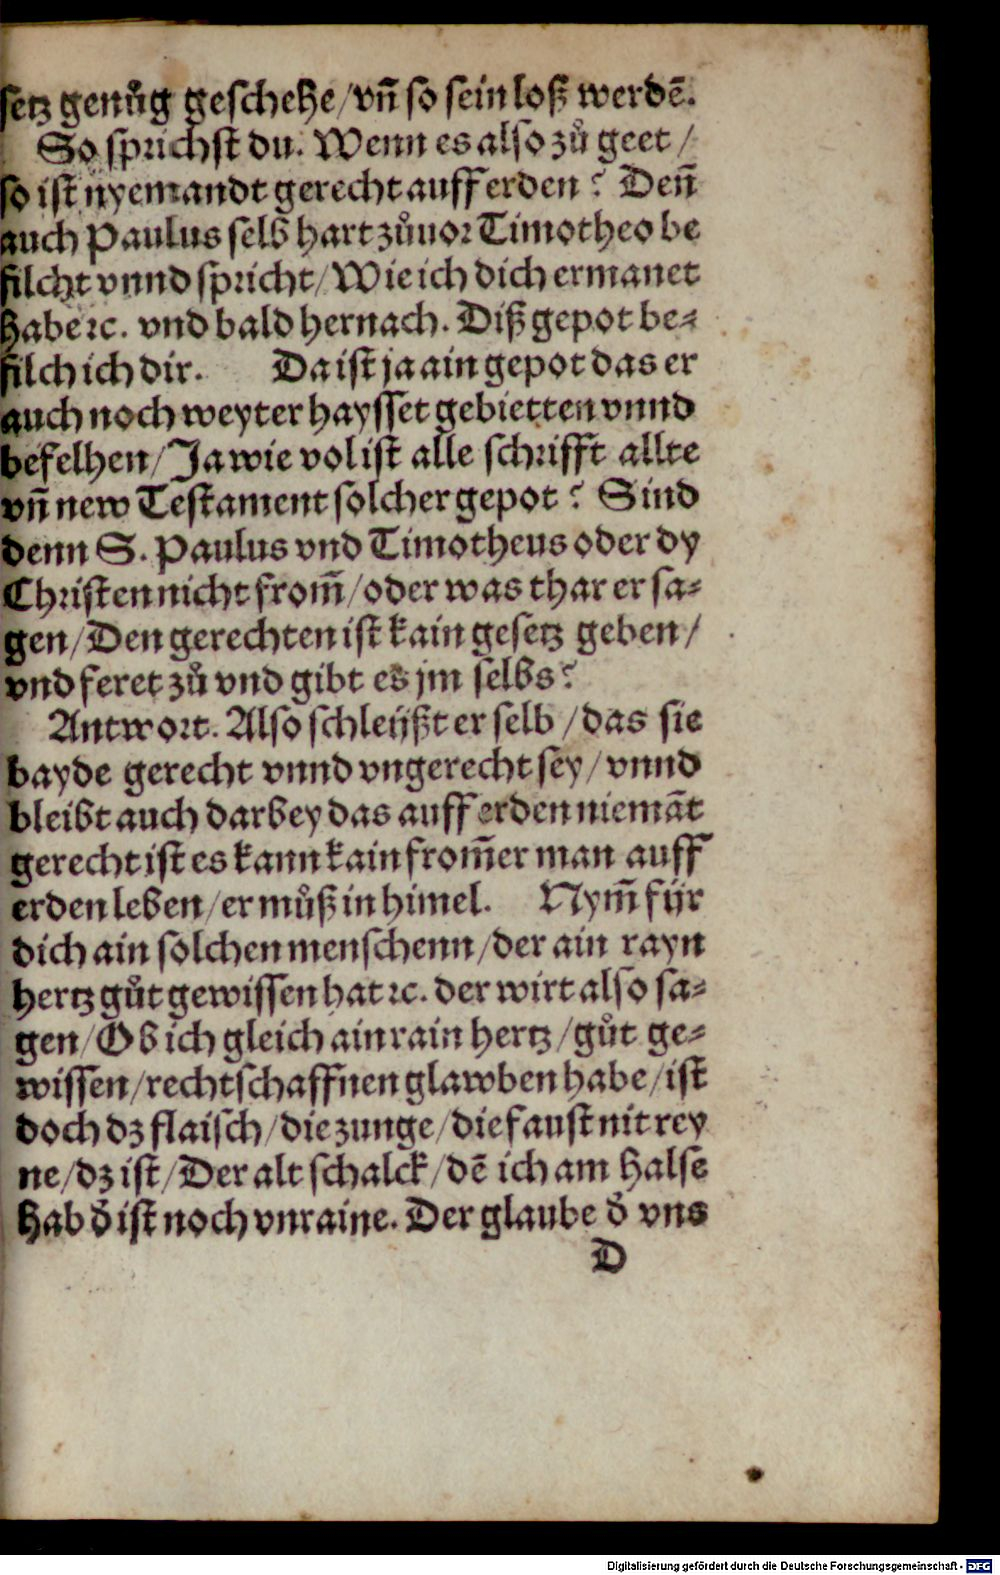 setz genůg geschehe/vñ so sein loß werdē.
So sprichst du. Wenn es also zů geet/
so ist nyemandt gerecht auff erden? Deñ
auch Paulus selb hart zůuor Timotheo be
filcht vnnd spricht/Wie ich dich ermanet
habe ꝛc. vnd bald hernach. Diß gepot be⸗
filch ich dir. Da ist ja ain gepot das er
auch noch weyter haysset gebietten vnnd
befelhen/Ja wie vol ist alle schrifft allte
vñ new Testament solcher gepot? Sind
denn S. Paulus vnd Timotheus oder dy
Christen nicht from̃/oder was thar er sa⸗
gen/Den gerechten ist kain gesetz geben/
vnd feret zů vnd gibt es jm selbs?
Antwort. Also schleüßt er selb/das sie
bayde gerecht vnnd vngerecht sey/vnnd
bleibt auch darbey das auff erden niemāt
gerecht ist es kann kain from̃er man auff
erden leben/er můß in himel. Nym̃ für
dich ain solchen menschenn/der ain rayn
hertz gůt gewissen hat ꝛc. der wirt also sa⸗
gen/Ob ich gleich ain rain hertz/gůt ge⸗
wissen/rechtschaffnen glawben habe/ist
doch dz flaisch/die zunge/die faust nit rey
ne/dz ist/Der alt schalck/dē ich am halse
hab ð ist noch vnraine. Der glaube ð vns
D
Digitalisierung gefördert durch die Deutsche Forschungsgemeinschaft - DFG